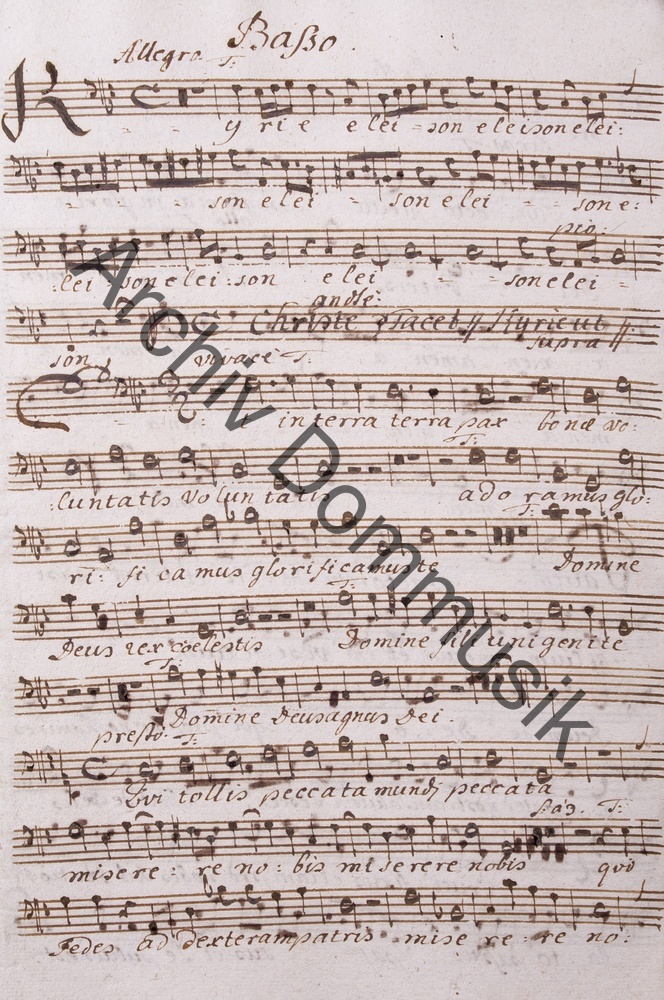 Basso.
Allegro T:
K y ri e e lei - son eleisonelei:
son e lei - son e lei - - son e:
pio:
lei - son e lei: son e lei - - son e lei -
andte:
Christe Tacet // Kyrieut //
supra
son vivace T:
in terra terra pax bonæ vo:
T:
luntatis voluntatis ado ramus glo:
T:
ri: fi camus glorificamuste Domine
T:
Deus rex coelestis Domine fili unigenite
T:
Domine Deus agnus Dei.
presto. T:
Qvi tollis peccata mundj peccata
T:
misere: re no: bis miserere nobis qvi
sedes ad dexteram patris mise re: re no:
Archiv Dommusik